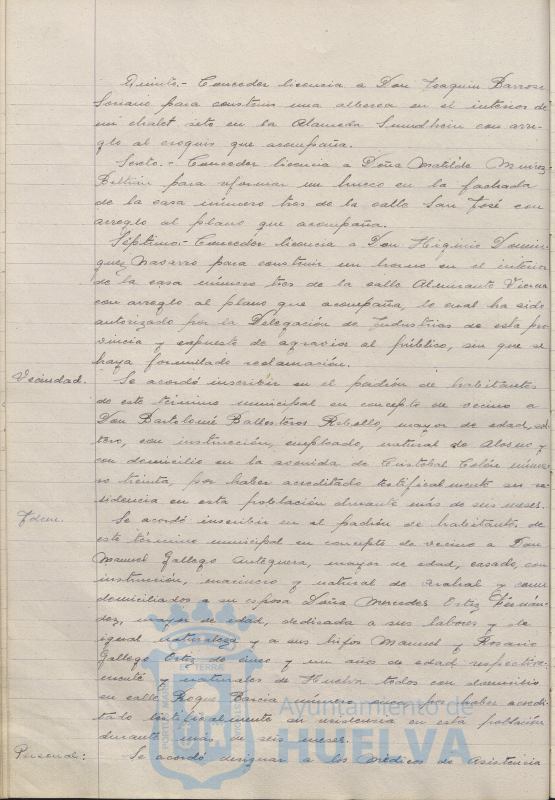 Quinto.- Conceder licencia a Don Joaquin Barroso
Soriano para construir una alberca en el interior de
un chalet sito en la Alameda Sundheim con arre-
glo al croquis que acompaña.
Sexto.- Conceder licencia a Doña Matilde Muñoz
Beltrán para reformar un hueco en la fachada
de la casa número tres de la calle San José con
arreglo al plano que acompaña.
Séptimo.- Conceder licencia a Don Higinio Domin-
guez Navarro para construir un horno en el interior
de la casa número tres de la calle Almirante Vierna
con arreglo al plano que acompaña, lo cual ha sido
autorizado por la Delegación de Industrias de esta pro-
vincia y expuesto de agravios al público, sin que se
haya formulado reclamación.
Vecindad. Se acordó inscribir en el padrón de habitantes
de este término municipal en concepto de vecino a
Don Bartolomé Ballesteros Rebollo, mayor de edad, sol-
tero, con instrucción, empleado, natural de Alosno y
con domicilio en la avenida de Cristobal Colón núme-
ro treinta, por haber acreditado testificalmente su re-
sidencia en esta población durante más de seis meses.
Idem. Se acordó inscribir en el padrón de habitantes de
este término municipal en concepto de vecino a Don
Manuel Gallego Antequera, mayor de edad, casado, con
instrucción, marinero y natural de Arahal y como
domiciliados a su esposa Doña Mercedes Ortiz Fernán-
dez, mayor de edad, dedicada a sus labores y de
igual naturaleza y a sus hijos Manuel y Rosario
Gallego Ortiz de cinco y un años de edad respectiva-
mente y naturales de Huelva todos con domicilio
en calle Roque Barcia número por haber acredi-
tado testificalmente su residencia en esta población
durante más de seis meses.
Personal: Se acordó designar a los médicos de Asistencia
Ayuntamiento de
HUELVA